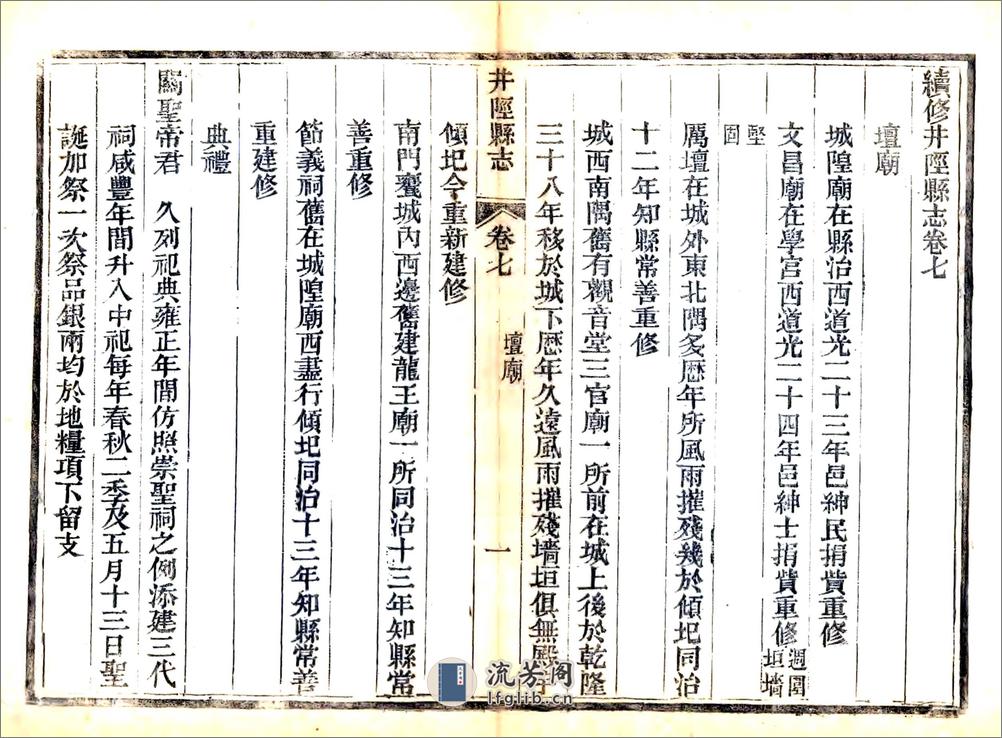 續修井陘縣志卷七
壇廟
城隍廟在縣治西道光二十三年邑紳民捐貲重修
文昌廟在學宮西道光二十四年邑紳士捐貲重修週圍垣墻
堅固
厲壇在城外東北隅多歷年所風雨摧殘幾於傾圮同治
十二年知縣常善重修
城西南隅舊有觀音堂三官廟一所前在城上後於乾隆
三十八年移於城下歷年久遠風雨摧殘墻垣俱無殿
井陘縣志 卷七 壇廟 一
傾圮今重新建修
南門甕城內西邊舊建龍王廟一所同治十三年知縣常
善重修
節義祠舊在城隍廟西盡行傾圮同治十三年知縣常善
重建修
典禮
關聖帝君 久列祀典雍正年間仿照崇聖祠之例添建三代
祠咸豐年間升入中祀每年春秋二季及五月十三日聖
誕加祭一次祭品銀兩均於地糧項下留支
流芳阁
lfglib.cn